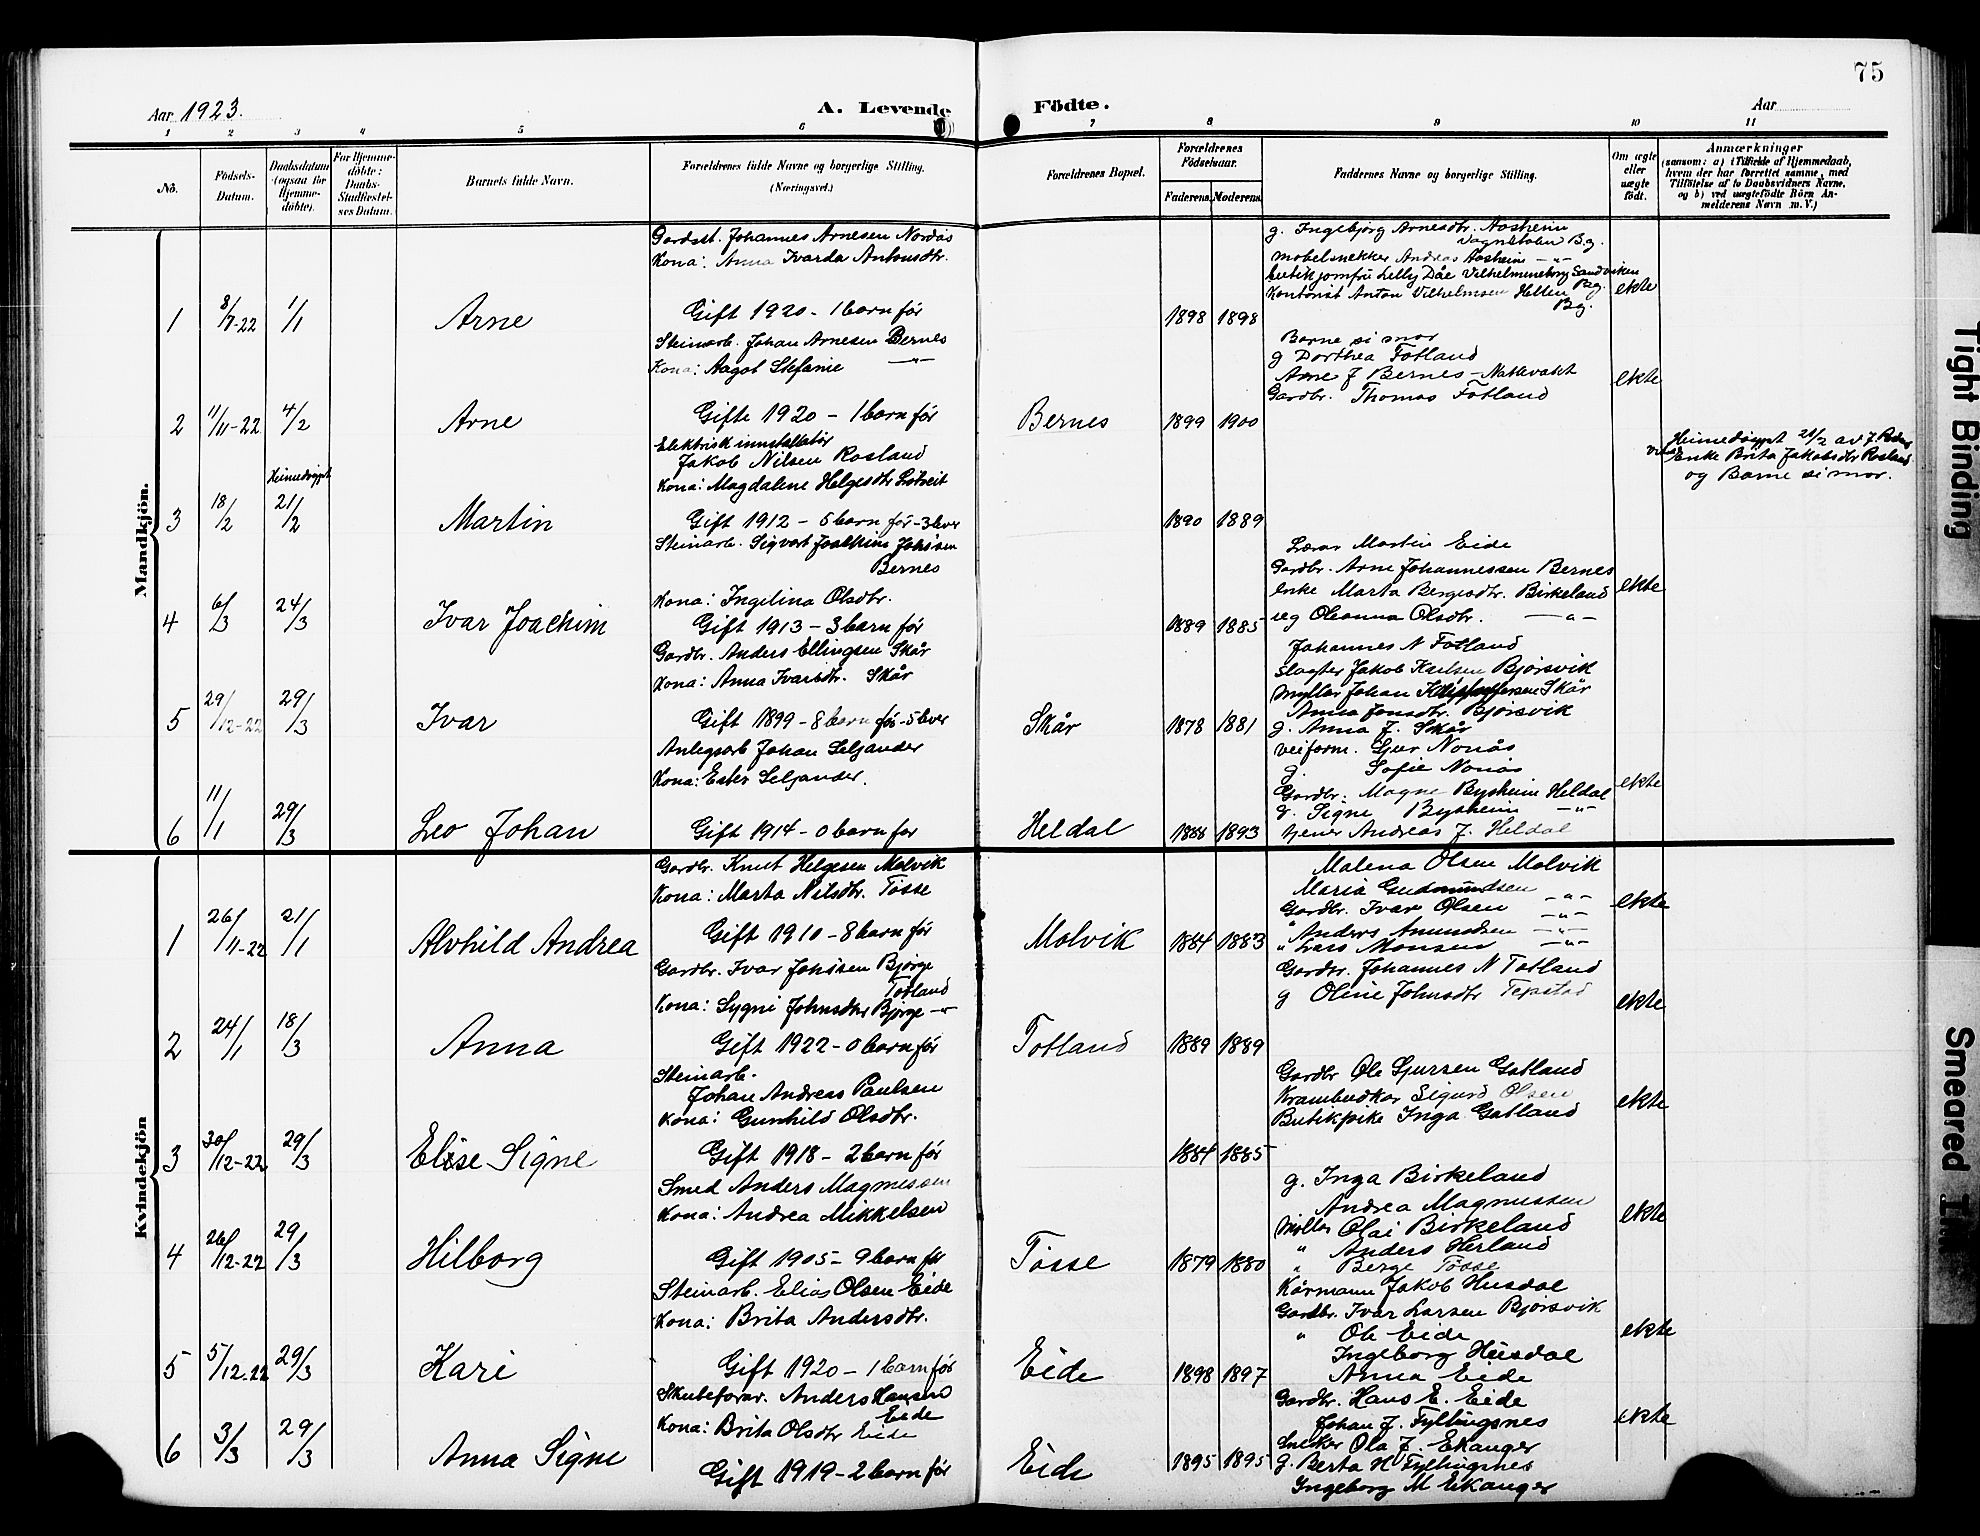 75
Aar 1923.
A. Levende Födte.
Aar
1 2 3 4 5 6 7 8 9 10 11
No.
Födsels-Datum.
Daabsdatum (ogsaa for Hjemmedöbte).
For Hjemmedöbte: Daabs-Stadfæstelses Datum.
Barnets fulde Navn.
Forældrenes fulde Navne og borgerlige Stilling. (Næringsvei.)
Forældrenes Bopæl.
Forældrenes Födselsaar.
Faderens. Moderens.
Faddernes Navne og borgerlige Stilling.
Om ægte eller uægte födt.
Anmærkninger
(saasom: a) i Tilfælde af Hjemmedaab, hvem der har forrettet samme, med Tilföielse af to Daabsvidners Navne, og b) ved uægtefödte Börn Anmelderens Navn m. V.)
Mandkjön.
Gardsst. Johannes Arnesen Nordås
Kona: Anna Ivarda Antonsdtr.
1 8/7-22 1/1 Arne Gift 1920 - 1 barn før 1898 1898
g. Ingebjørg Arnesdtr. Aasheim
Møbelsnekker Andreas Aasheim -"-
butikjomfru Lelly Dåe Vilhelmineborg Sandviken Bg.
Kontorist Anton Vilhelmsen Hellen Bg.
ekte
Steinarb. Johan Arnesen Bernes
Kona: Aagot Stefanie -"-
2 11/11-22 4/2 Arne Gifte 1920 - 1 barn før Bernes 1899 1900
Barne si mor
g Dorthea Totland
Arne J Bernes - Nattevakt
Gardbr. Thomas Totland
ekte
Elektrisk innstallatør
Jakob Nilsen Rosland
Kona: Magdalene Helgesdtr
3 18/2 Heimedøypt 21/2 Martin Gift 1912 - 5 barn før - 3 lever 1890 1889
Heimedøypt 21/2 av J.
Enke Brita Jakobsdtr Rosland
og Barne si mor.
Steinarb. Sigvart Joakkim Johssen
Bernes
Kona: Ingelina Olsdtr.
4 6/3 24/3 Ivar Joachim Gift 1913 - 3 barn før 1889 1885
Lærar Martin Eide
Gardbr. Arne Johannessen Bernes
enke Marta Bergesdtr. Birkeland
ug Oleanna Olsdtr. -"-
ekte
Gardbr. Anders Ellingsen Skår
Kona: Anna Ivarsdtr. Skår
5 29/12-22 29/3 Ivar Gift 1899 - 8 barn før - 5 lever Skår 1878 1881
Johannes N Totland
Slagter Jakob Karlsen Bjørsvik
Myllar Johan Skår
Anna Jonsdtr. Bjørsvik
g. Anna J. Skår
Anlegsarb Johan Seljander
Kona: Ester Seljander.
6 11/1 29/3 Leo Johan Gift 1914 - 0 barn før Heldal 1888 1893
veiform. Sjur Nonås
g. Sofie Nonås
Gardbr. Magne Bysheim Heldal
g. Signe Bysheim -"-
tjener Andreas J. Heldal
ekte
Kvindekjön
Gardbr. Knut Helgesen Molvik
Kona: Marta Nilsdtr. Tøsse
1 26/11-22 21/1 Alvhild Andrea Gift 1910 - 8 barn før Molvik 1884 1883
Malena Olsen Molvik
Maria Gudmundsen -"-
Gardbr. Ivar Olsen -"-
" Anders Amundsen -"-
" Lars Monsen -"-
ekte
Gardbr. Ivar Johssen Bjørge
Totland
Kona: Sygni Johnsdtr Bjørge -"-
2 24/1 18/3 Anna Gift 1922 - 0 barn før Totland 1889 1889
Gardbr. Johannes N Totland
g Oline Johnsdtr Tepstad
ekte
Steinarb.
Johan Andreas Paulsen
Kona: Gunhild Olsdtr.
3 30/12-22 29/3 Elise Signe Gift 1918 - 2 barn før 1884 1885
Gardbr Ole Sjursen Gotland
Krambudkar Sigurd Olsen
Butikpike Inga Gotland
ekte
Smed Anders Magnussen
Kona: Andrea Mikkelsen
4 26/12-22 29/3 Hilborg Gift 1905 - 9 barn før Tøsse 1879 1880
g. Inga Birkeland
Andrea Magnussen
Møllar Olai Birkeland
" Anders Herland
" Berge Tøsse
ekte
Steinarb. Elias Olsen Eide
Kona: Brita Andersdtr.
5 5/12-22 29/3 Kari Gift 1920 - 1 barn før Eide 1898 1897
Kårmann Jakob Husdal
Gardbr. Ivar Larsen Bjørsvik
" Ole Eide
Ingeborg Husdal
Anna Eide
ekte
Skuteførar. Anders Hansen
Eide
Kona: Brita Olsdtr Eide
6 3/3 29/3 Anna Signe Gift 1919 - 2 barn før Eide 1895 1895
Gardbr. Hans E. Eide
Johan J. Fyllingsnes
Snekker Ola J. Ekanger
g. Berta H Fyllingsnes
Ingeborg M Ekanger
ekte
Tight Binding
Smeared Ink